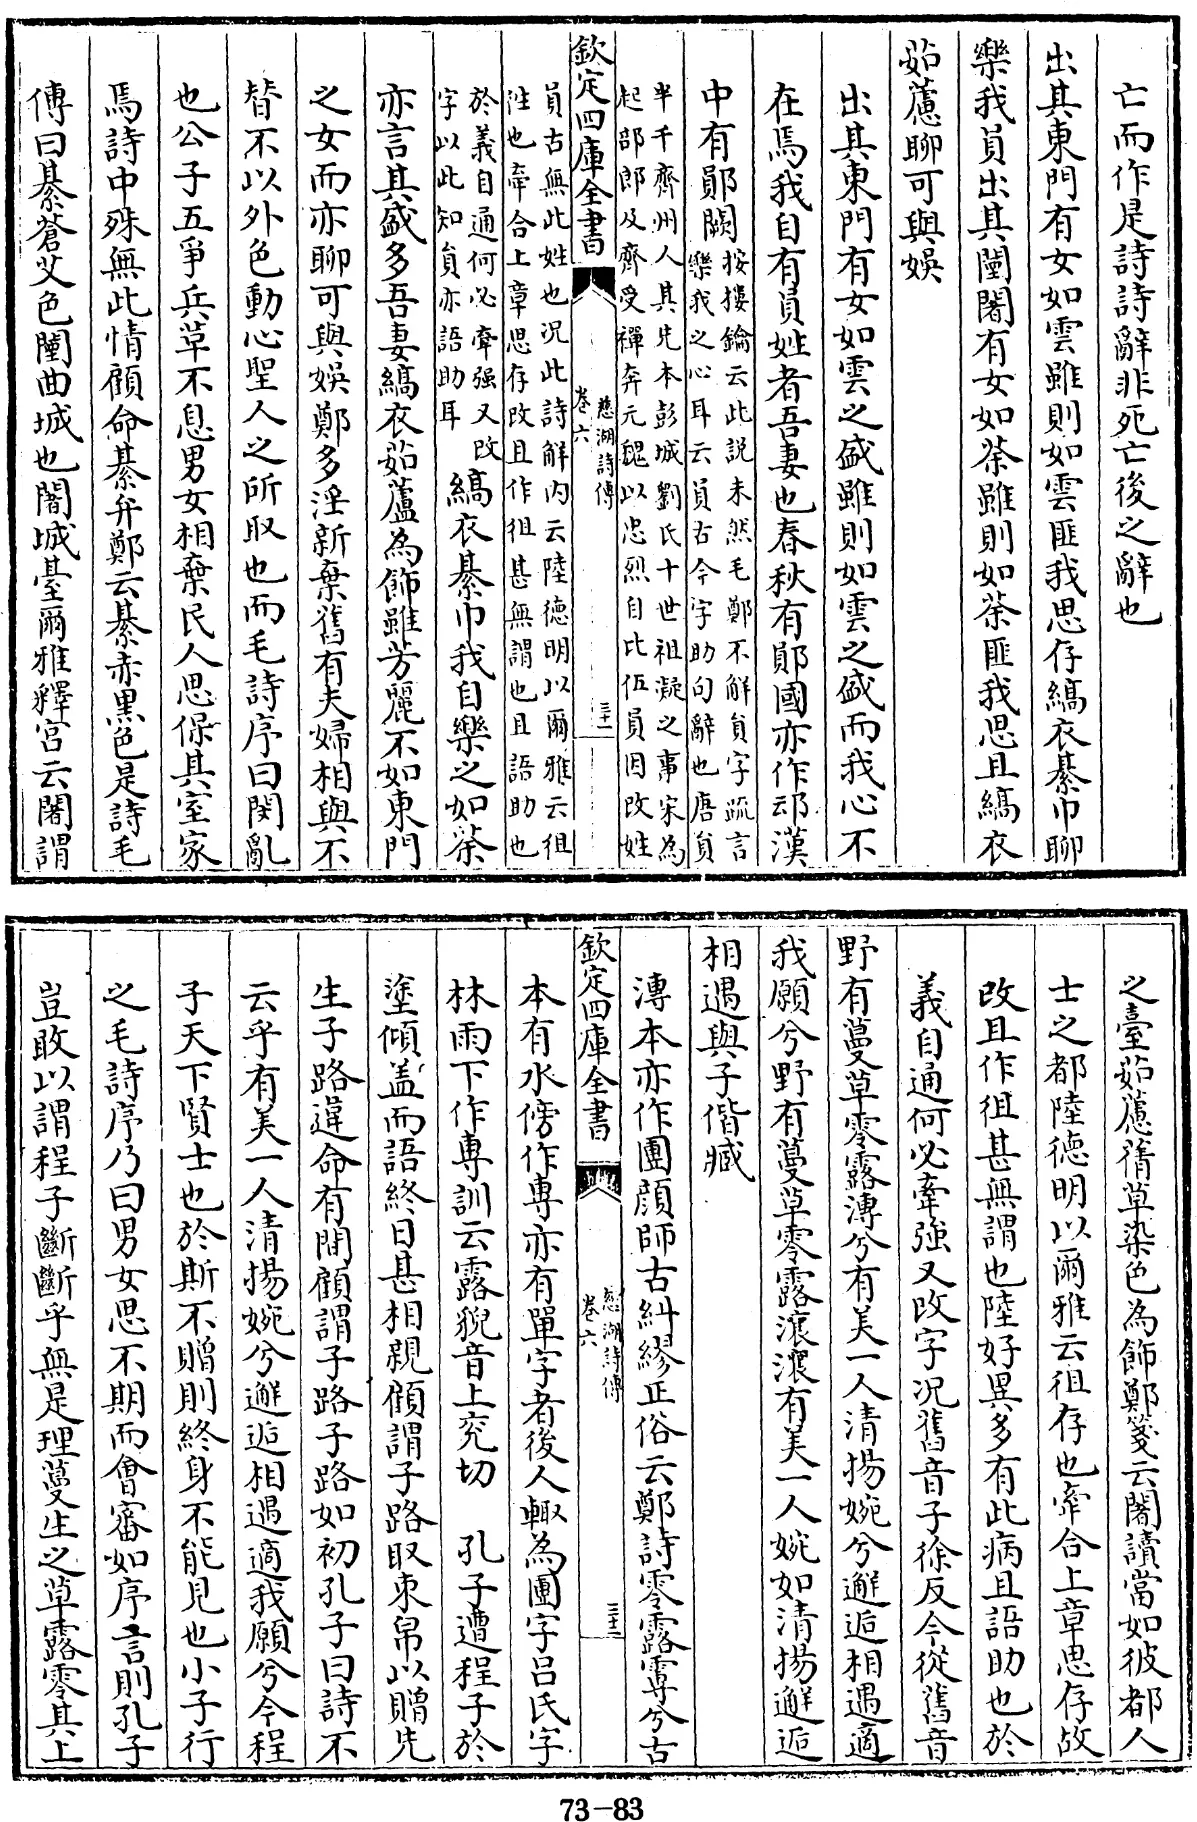 亡而作是詩詩辭非死亡後之辭也
出其東門有女如雲雖則如雲匪我思存縞衣綦巾聊
樂我員出其闉闍有女如荼雖則如荼匪我思且縞衣
茹藘聊可與娛
出其東門有女如雲之盛雖則如雲之盛而我心不
在焉我自有員姓者吾妻也春秋有鄖國亦作䢵漢
中有鄖關
按摟鑰云此説未然毛鄭不解員字疏言
樂我之心耳云員古今字助句辭也唐員
半千齊州人其先本彭城劉氏十世祖凝之事宋為
起部郎及齊受禪奔元魏以忠烈自比伍員因改姓
欽定四庫全書
慈湖詩傳
卷六
三十一
員古無此姓也況此詩解内云陸德明以爾雅云徂
往也牽合上章思存改且作徂甚無謂也且語助也
於義自通何必牽强又改
字以此知員亦語助耳
縞衣綦巾我自樂之如荼
亦言其盛多吾妻縞衣茹藘為飾雖芳麗不如東門
之女而亦聊可與娛鄭多淫新棄舊有夫婦相與不
替不以外色動心聖人之所取也而毛詩序曰閔亂
也公子五爭兵革不息男女相棄民人思保其室家
焉詩中殊無此情顧命綦弁鄭云綦赤黑色是詩毛
傳曰綦蒼艾色闉曲城也闍城臺爾雅釋宫云闍謂
之臺茹藘蒨草染色為飾鄭箋云闍讀當如彼都人
士之都陸德明以爾雅云徂存也牽合上章思存故
改且作徂甚無謂也陸好異多有此病且語助也於
義自通何必牽強又改字況舊音子徐反今從舊音
野有蔓草零露漙兮有美一人清揚婉兮邂逅相遇適
我願兮野有蔓草零露瀼瀼有美一人婉如清揚邂逅
相遇與子偕臧
漙本亦作團顔師古糾繆正俗云鄭詩零露漙兮古
欽定四庫全書
慈湖詩傳
卷六
三十二
本有水傍作專亦有單字者後人輙為團字吕氏字
林雨下作専訓云露貎音上兖切 孔子遭程子於
塗傾盖而語終日甚相親顧謂子路取束帛以贈先
生子路違命有間顧謂子路子路如初孔子曰詩不
云乎有美一人清揚婉兮邂逅相遇適我願兮今程
子天下賢士也於斯不贈則終身不能見也小子行
之毛詩序乃曰男女思不期而會審如序言則孔子
豈敢以謂程子齗齗乎無是理蔓生之草露零其上
73-83